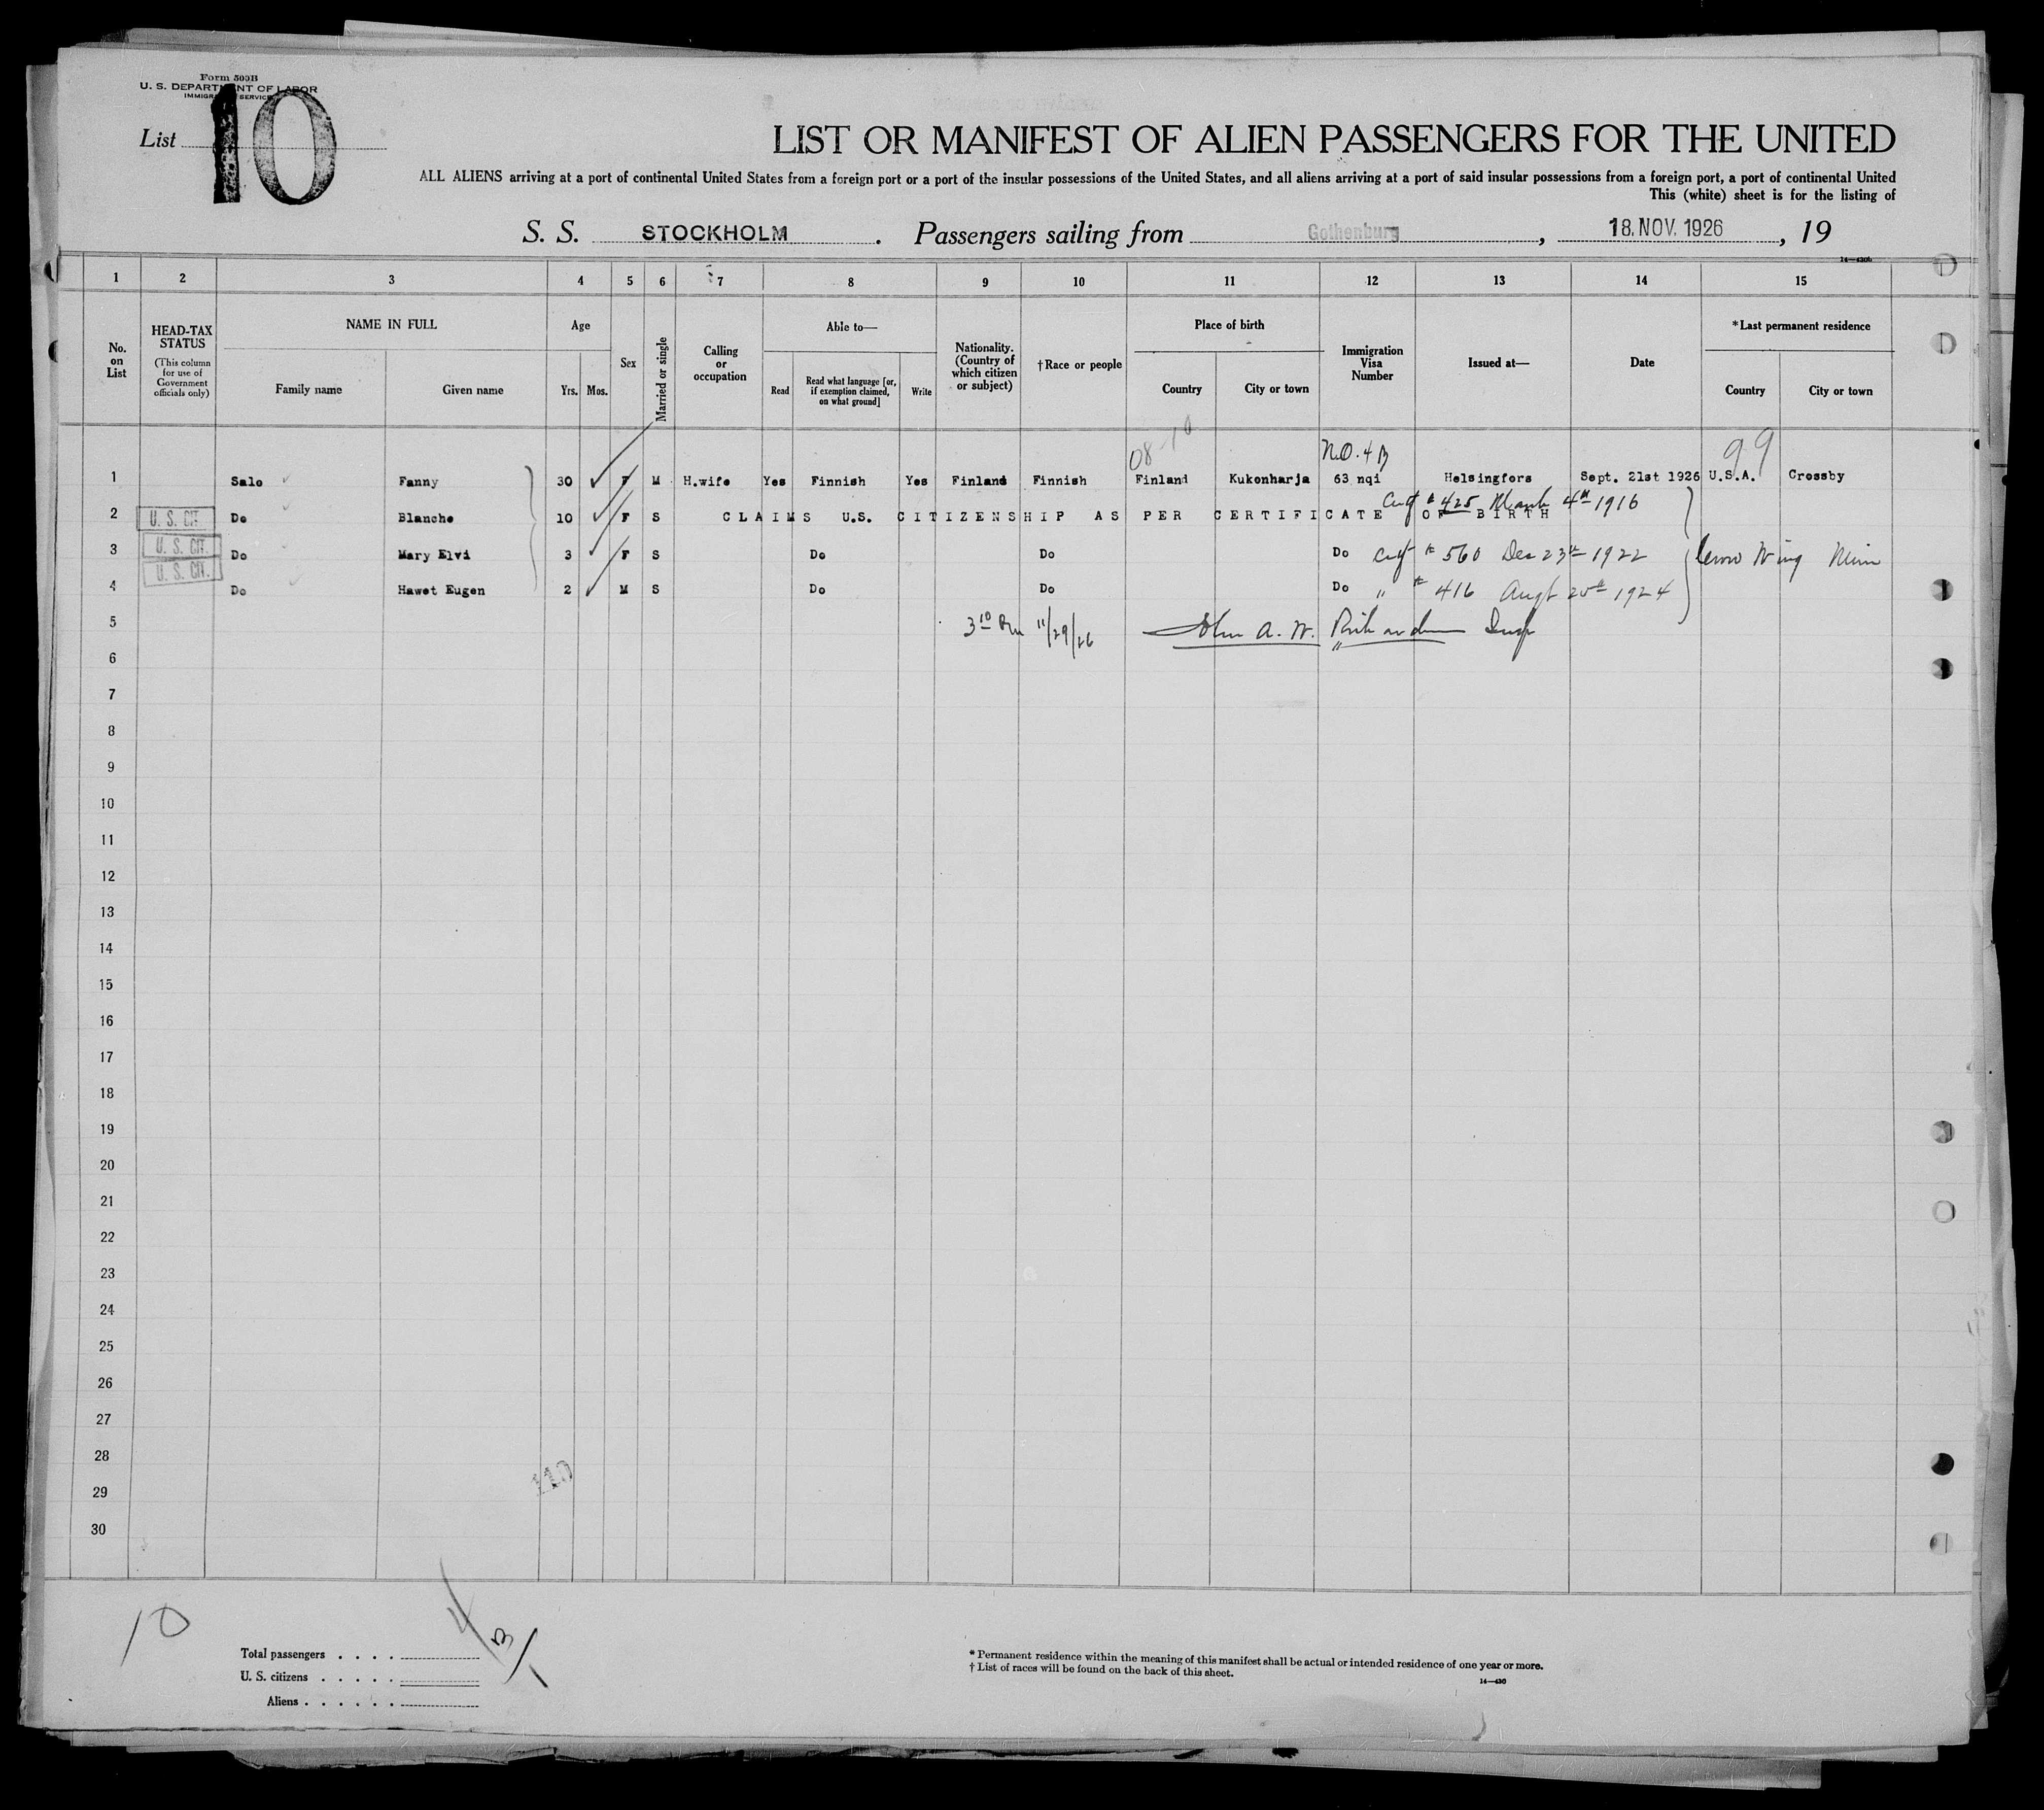 Form 500B
U. S. DEPARTMENT OF LABOR
IMMIGRATION SERVICE
List 10
LIST OR MANIFEST OF ALIEN PASSENGERS FOR THE UNITED
ALL ALIENS arriving at a port of continental United States from a foreign port or a port of the insular possessions of the United States, and all aliens arriving at a port of said insular possessions from a foreign port, a port of continental United
This (white) sheet is for the listing of
S. S. STOCKHOLM . Passengers sailing from Gothenburg , 18. NOV. 1926 , 19
1 2 3 4 5 6 7 8 9 10 11 12 13 14 15
No. on List
HEAD-TAX STATUS
(This column for use of Government officials only)
NAME IN FULL
Family name Given name
Age
Yrs. Mos.
Sex
Married or single
Calling or occupation
Able to—
Read
Read what language [or, if exemption claimed, on what ground]
Write
Nationality. (Country of which citizen or subject)
†Race or people
Place of birth
Country City or town
Immigration Visa Number
Issued at—
Date
*Last permanent residence
Country City or town
08-10 N.O. 4 B 99
1 Salo Fanny 30 F M H.wife Yes Finnish Yes Finland Finnish Finland Kukonharja 63 nqi Helsingfors Sept. 21st 1926 U.S.A. Crossby
2 U. S. CIT. Do Blanche 10 F S CLAIMS U.S. CITIZENSHIP AS PER CERTIFICATE OF BIRTH Cert # 425 March 4th 1916
3 U. S. CIT. Do Mary Elvi 3 F S Do Do Do Cert # 560 Dec 23rd 1922 Crow Wing Minn
4 U. S. CIT. Do Hawet Eugen 2 M S Do Do Do " # 416 Augt 25th 1924
5 11/29/26 John A. W. Richardson Insp
6
7
8
9
10
11
12
13
14
15
16
17
18
19
20
21
22
23
24
25
26
27
28
29
30
110
10
4
3
1
Total passengers . . . .
U. S. citizens . . . . .
Aliens . . . . . .
* Permanent residence within the meaning of this manifest shall be actual or intended residence of one year or more.
† List of races will be found on the back of this sheet.
14—430